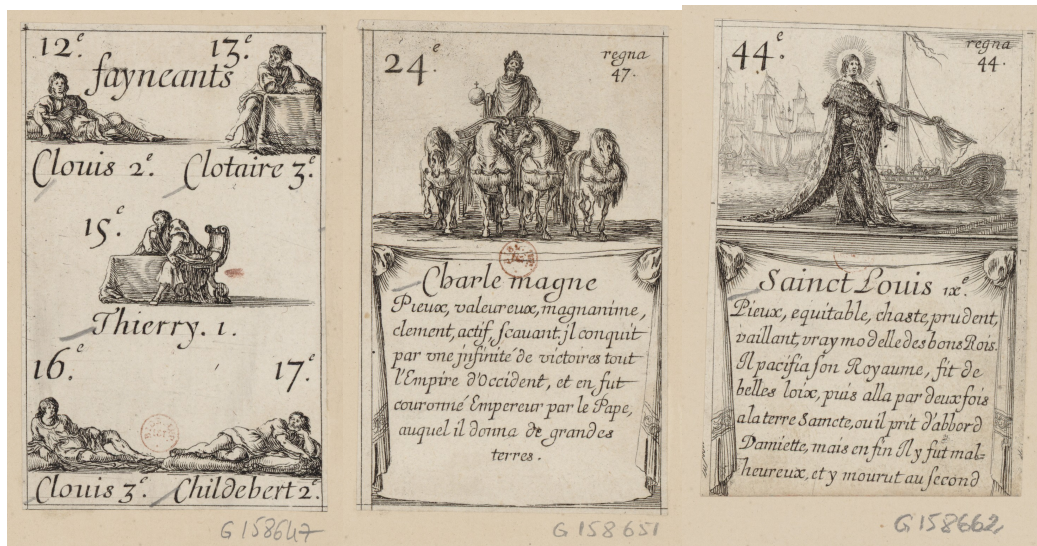 12.e 13.e
fayneants
Clouis 2.e Clotaire 3.e
15.e
Thierry. 1.
16.e 17.e
Clouis 3.e Childebert 2.e
G 158647
24.e
regna
47.
Charle magne
Pieux, valeureux, magnanime,
clement, actif, scauant. jl conquit
par vne jnfinité de victoires tout
l'Empire d'Occident, et en fut
couronné Empereur par le Pape,
auquel il donna de grandes
terres.
G 158651
44.e
regna
44.
Sainct Louis ixe.
Pieux, equitable, chaste, prudent,
vaillant, vray modelle des bons Rois.
Il pacifia son Royaume, fit de
belles loix, puis alla par deux fois
a la terre Saincte, ou il prit d'abbord
Damiette, mais en fin Il y fut mal=
heureux, et y mourut au second
G 158662